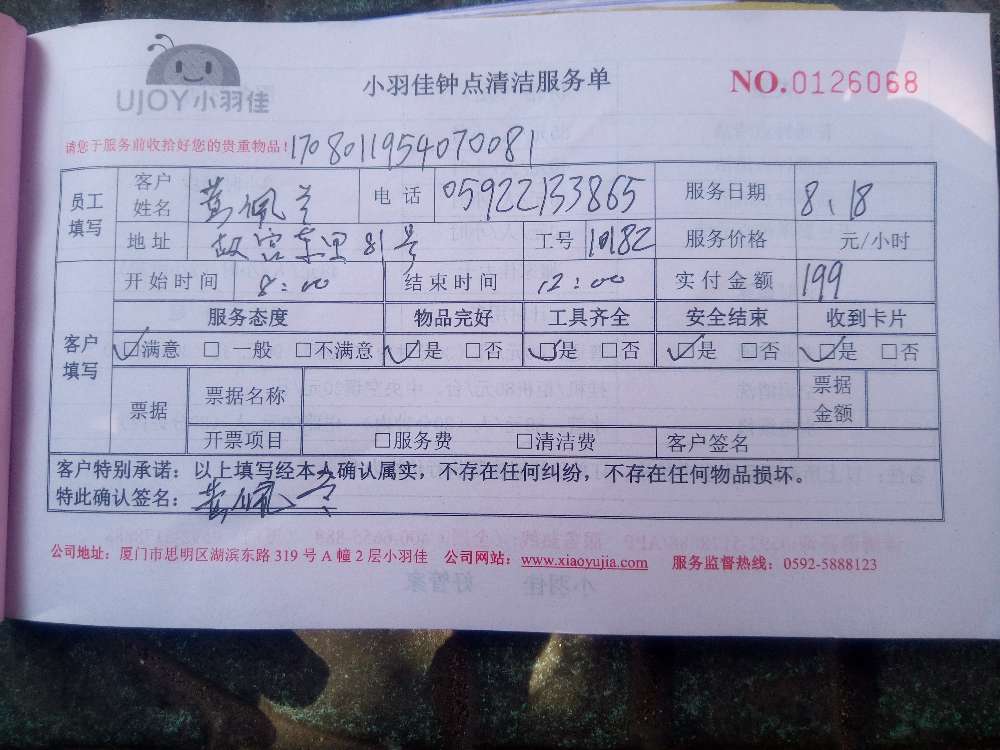 UJOY小羽佳
小羽佳钟点清洁服务单
NO.0126068
请您于服务前收拾好您的贵重物品! 1708011954070081
员工填写 客户姓名 黄佩兰 电话 05922133865 服务日期 8、18
地址 故宫东里81号 工号 10182 服务价格 元/小时
客户填写 开始时间 8:00 结束时间 12:00 实付金额 199
服务态度 物品完好 工具齐全 安全结束 收到卡片
☑满意 □一般 □不满意 ☑是 □否 ☑是 □否 ☑是 □否 ☑是 □否
票据 票据名称 票据金额
开票项目 □服务费 □清洁费 客户签名
客户特别承诺：以上填写经本人确认属实，不存在任何纠纷，不存在任何物品损坏。
特此确认签名：黄佩兰
公司地址：厦门市思明区湖滨东路 319 号 A 幢 2 层小羽佳 公司网站：www.xiaoyujia.com 服务监督热线：0592-5888123